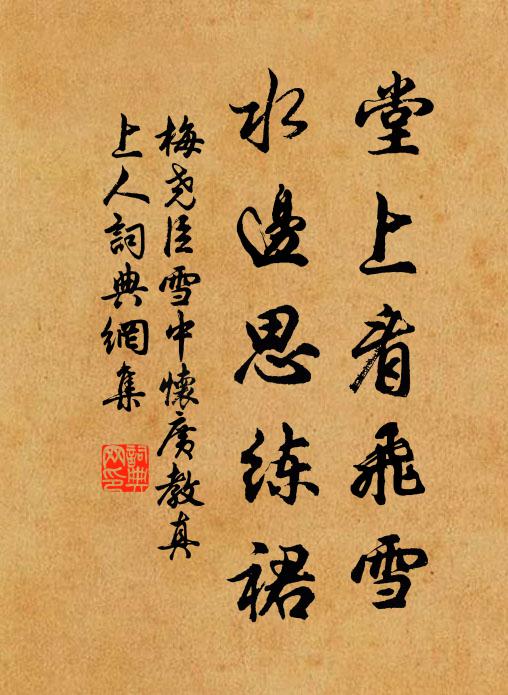 堂上看飛雪
水邊思練裙
梅堯臣雪中懷廣教真
上人詞典網集
詞典
网印